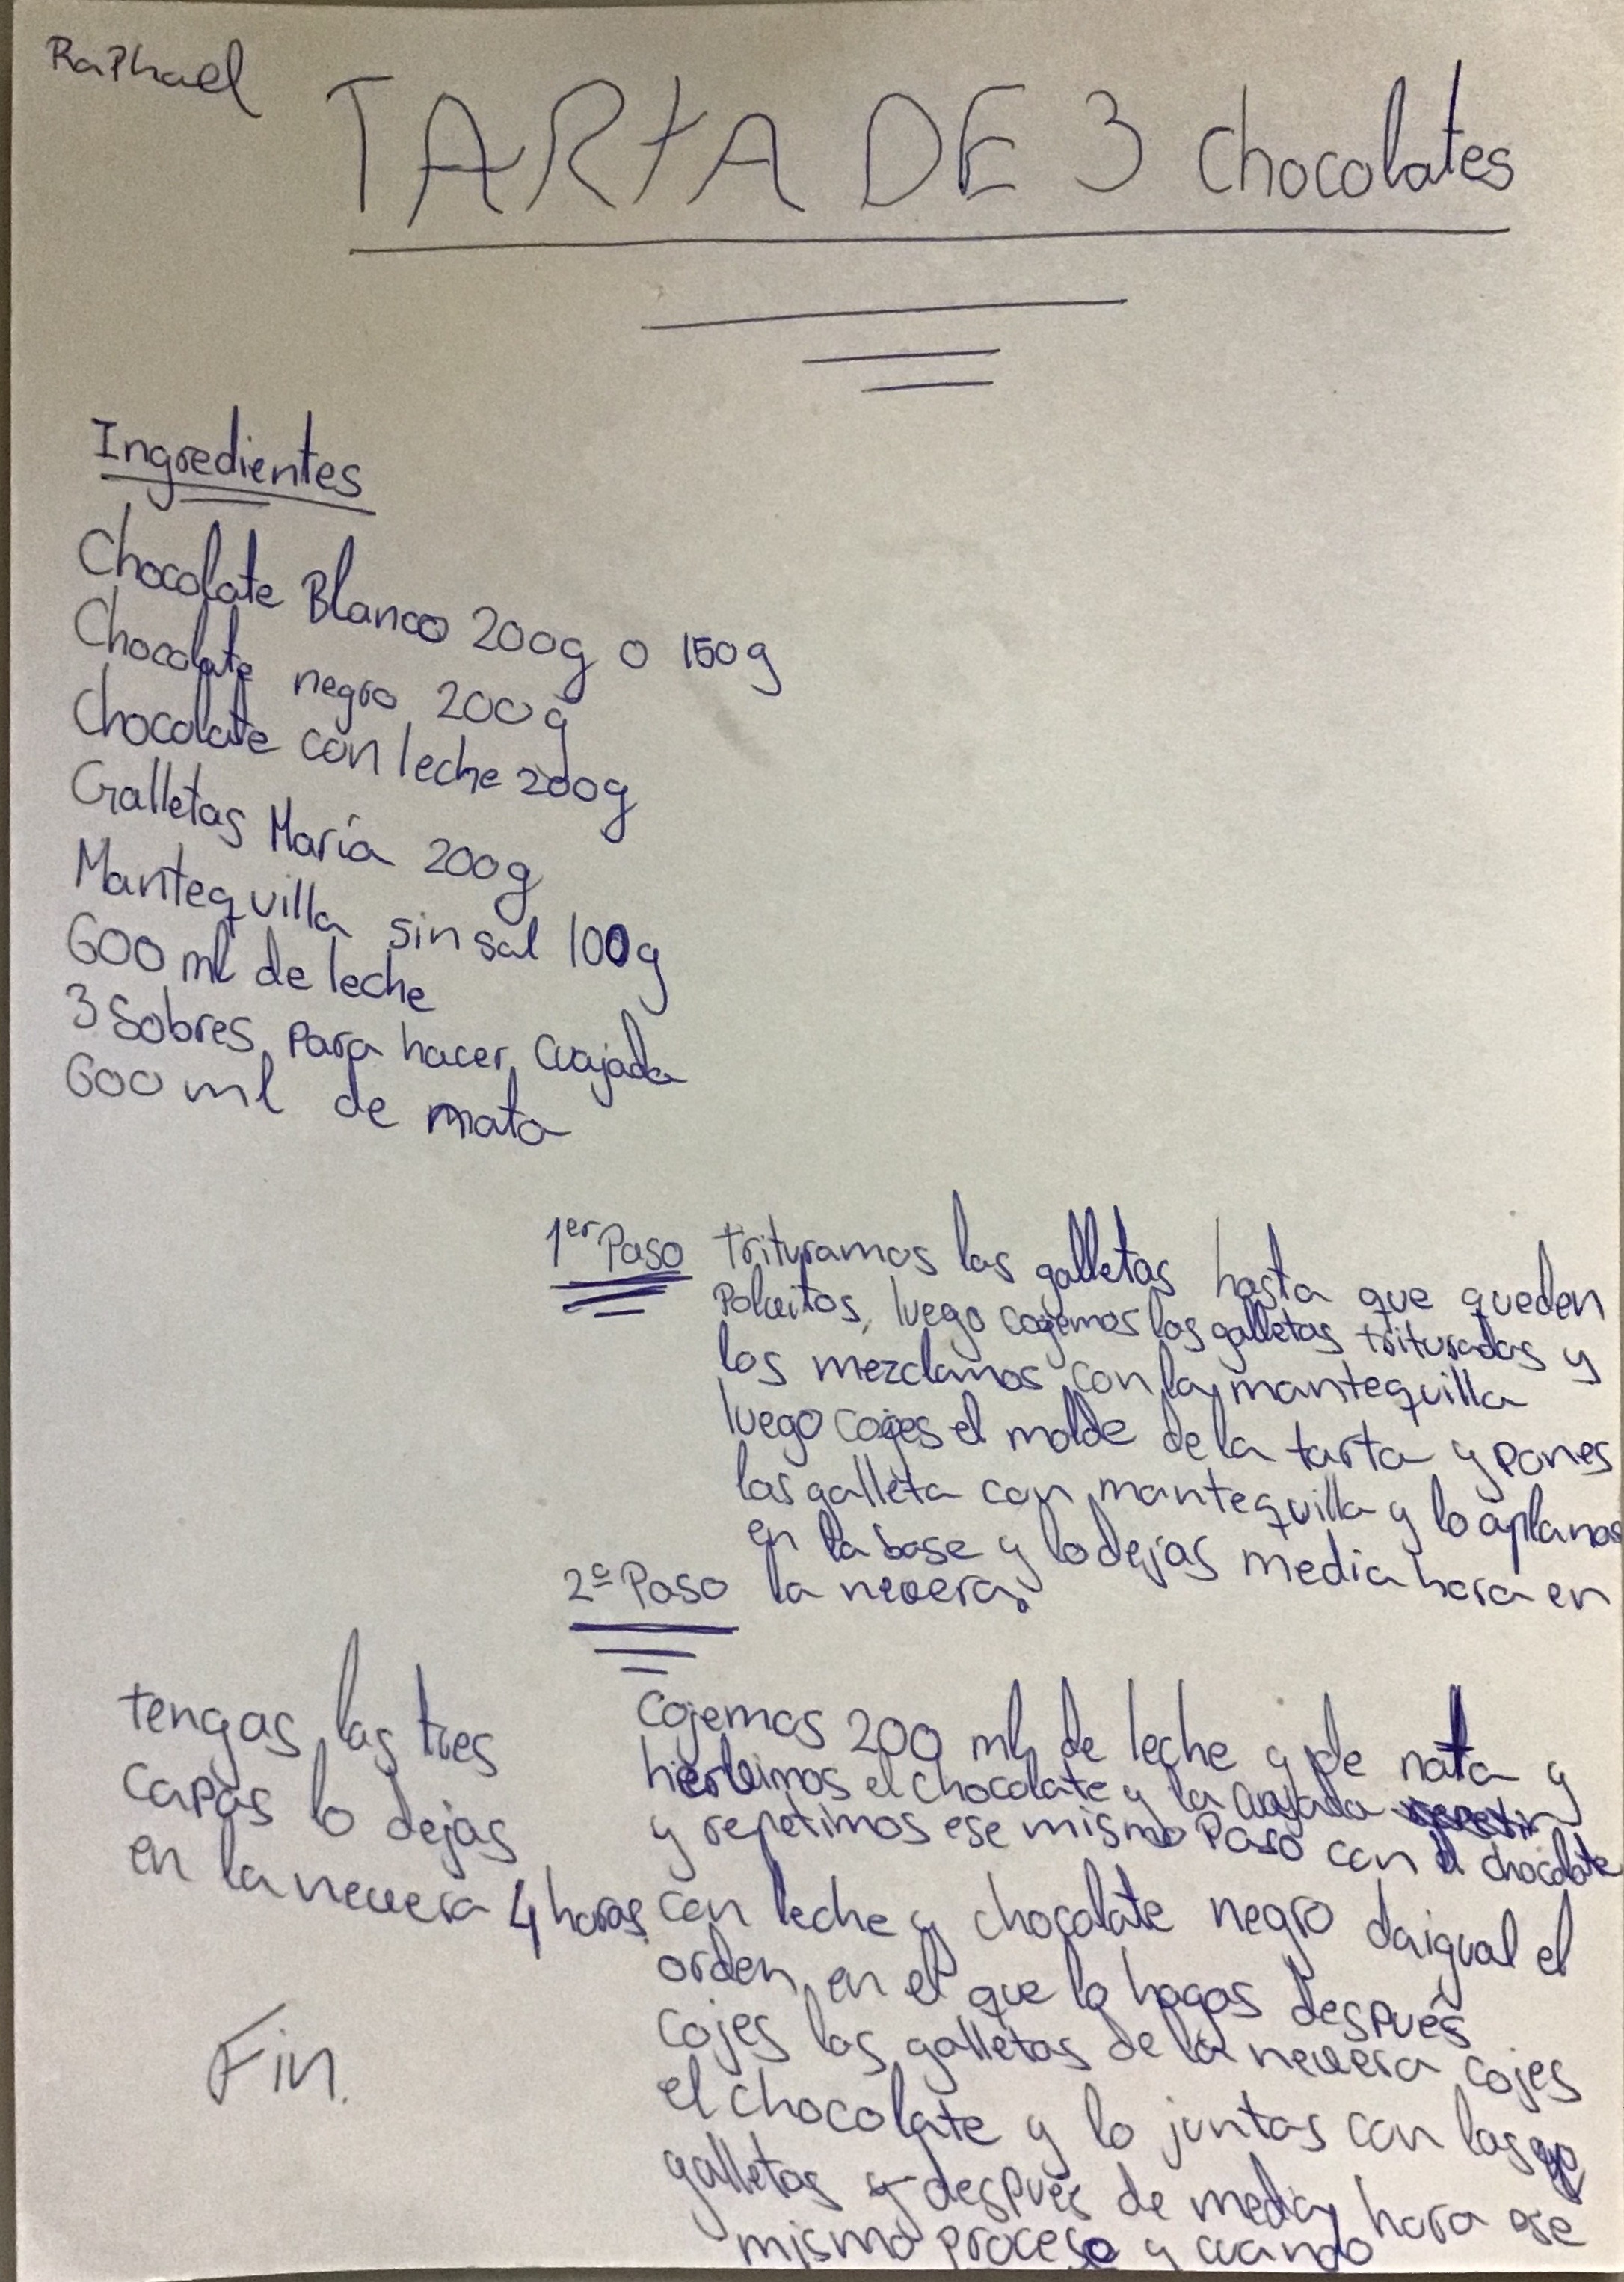 Raphael
TARTA DE 3 chocolates
Ingredientes
Chocolate Blanco 200g o 150g
Chocolate negro 200g
Chocolate con leche 200g
Galletas María 200g
Mantequilla sin sal 100g
600 ml de leche
3 Sobres para hacer cuajada
600 ml de nata
1er Paso trituramos las galletas hasta que queden
Polvitos, luego cogemos las galletas trituradas y
las mezclamos con la mantequilla
luego coges el molde de la tarta y pones
las galleta con mantequilla y lo aplanas
en la base y lo dejas media hora en
la nevera.
2º Paso
cojemos 200 ml de leche y de nata y
hierbimos el chocolate y la cuajada
y repetimos ese mismo Paso con el chocolate
con leche y chocolate negro da igual el
orden en el que lo hagas después
cojes las galletas de la nevera cojes
el chocolate y lo juntas con las
galletas y después de media hora ese
mismo proceso y cuando
tengas las tres
capas lo dejas
en la nevera 4 horas
Fin.